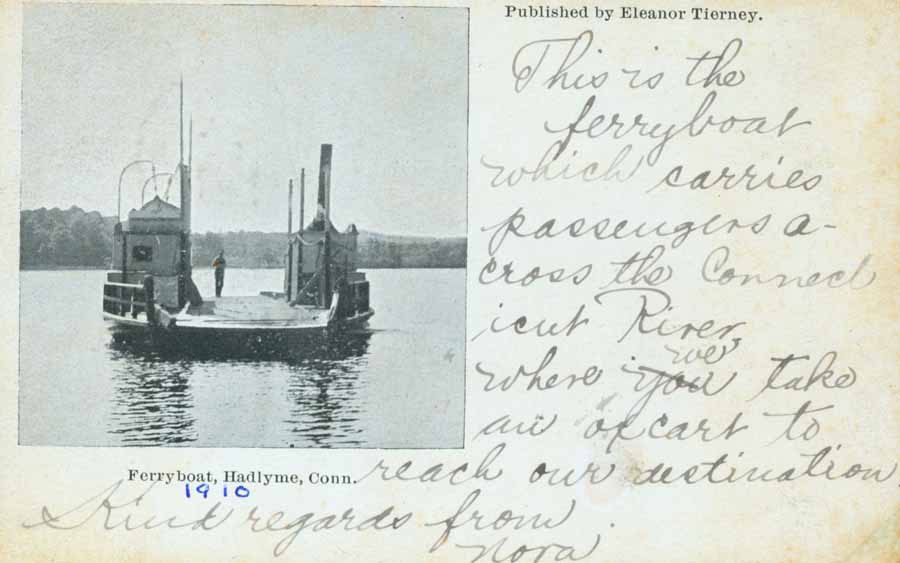 Published by Eleanor Tierney.
This is the
ferryboat
which carries
passengers a-
cross the Connect
icut River
we
where you take
an ox cart to
reach our destination
Ferryboat, Hadlyme, Conn.
1910
Kind regards from
Nora